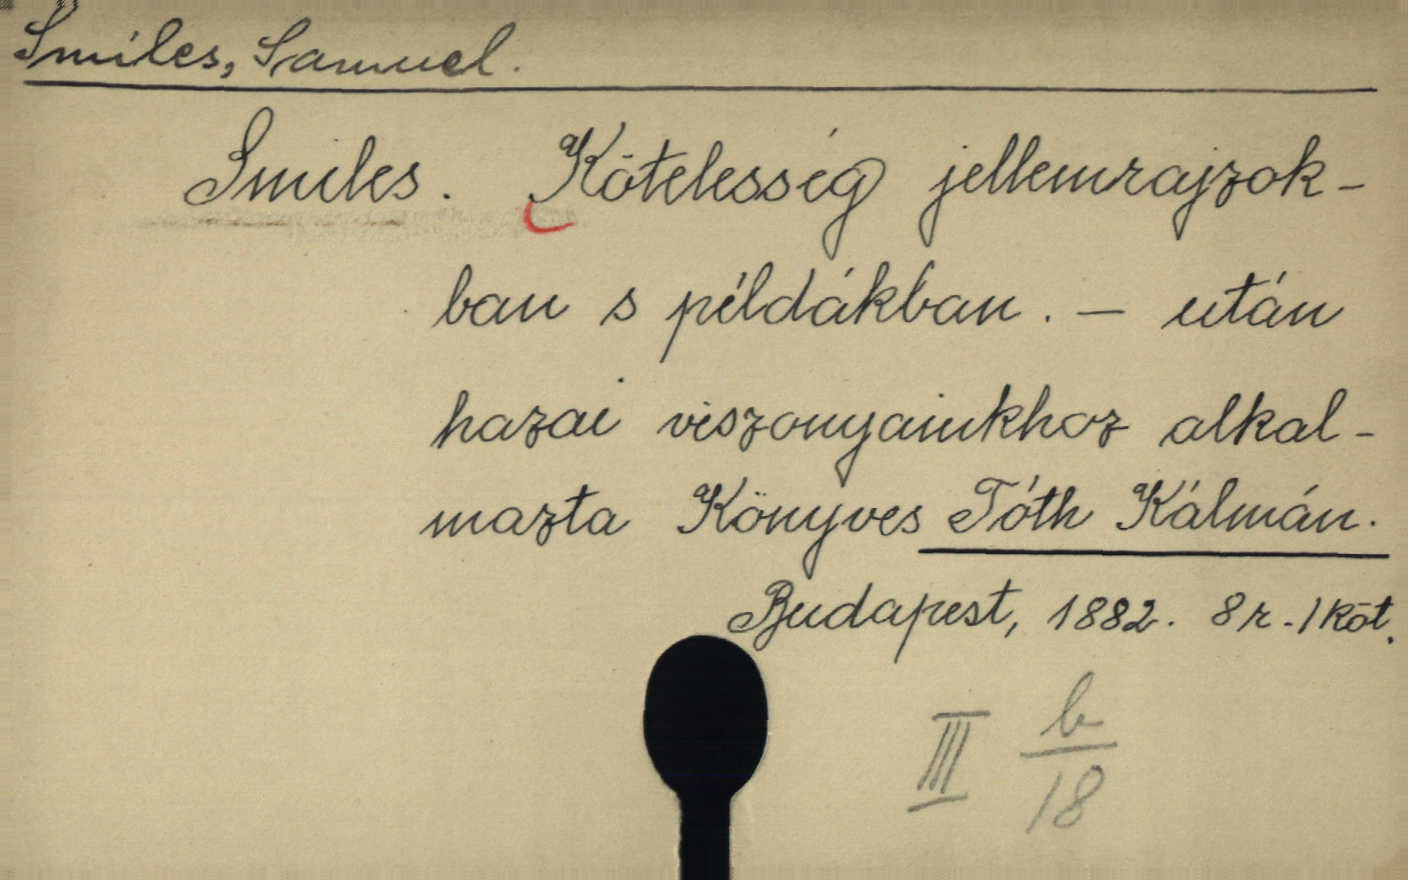 Smiles, Samuel.
Smiles. Kötelesség jellemrajzok-
ban s példákban. — után
hazai viszonyainkhoz alkal-
mazta Könyves Tóth Kálmán.
Budapest, 1882. 8r. 1 köt.
III b/18